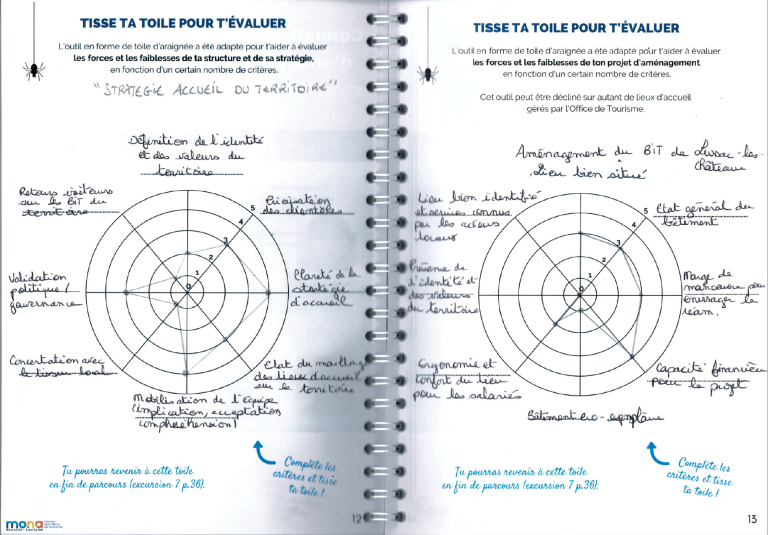 TISSE TA TOILE POUR T'ÉVALUER
L'outil en forme de toile d'araignée a été adapté pour t'aider à évaluer
les forces et les faiblesses de ta structure et de sa stratégie,
en fonction d'un certain nombre de critères.
"STRATEGIE ACCUEIL DU TERRITOIRE"
Définition de l'identité
et des valeurs du
territoire
Retours visiteurs
sur les BIT du
territoire
des clientèles
Validation
politique /
gouvernance
Clareté de la
stratégie
d'accueil
Concertation avec
le tissu local
Etat du maillage
des lieux d'accueil
sur le territoire
Mobilisation de l'équipe
(implication, acceptation
compréhension)
5
4
3
2
1
0
Tu pourras revenir à cette toile
en fin de parcours (excursion 7 p.36).
Complète les
critères et tisse
ta toile !
mona
12
TISSE TA TOILE POUR T'ÉVALUER
L'outil en forme de toile d'araignée a été adapté pour t'aider à évaluer
les forces et les faiblesses de ton projet d'aménagement,
en fonction d'un certain nombre de critères.
Cet outil peut être décliné sur autant de lieux d'accueil
gérés par l'Office de Tourisme.
Aménagement du BIT de Lussac-les-
Châteaux
Lieu bien situé
Lieu bien identifié
et services connus
par les acteurs
locaux
Etat général du
bâtiment
Présence de
l'identité et
des valeurs
du territoire
Marge de
manoeuvre pour
envisager le
réam.
Ergonomie et
confort du lieu
pour les salariés
Capacité financière
pour le projet
Bâtiment éco-exemplaire
5
4
3
2
1
0
Tu pourras revenir à cette toile
en fin de parcours (excursion 7 p.36).
Complète les
critères et tisse
ta toile !
13